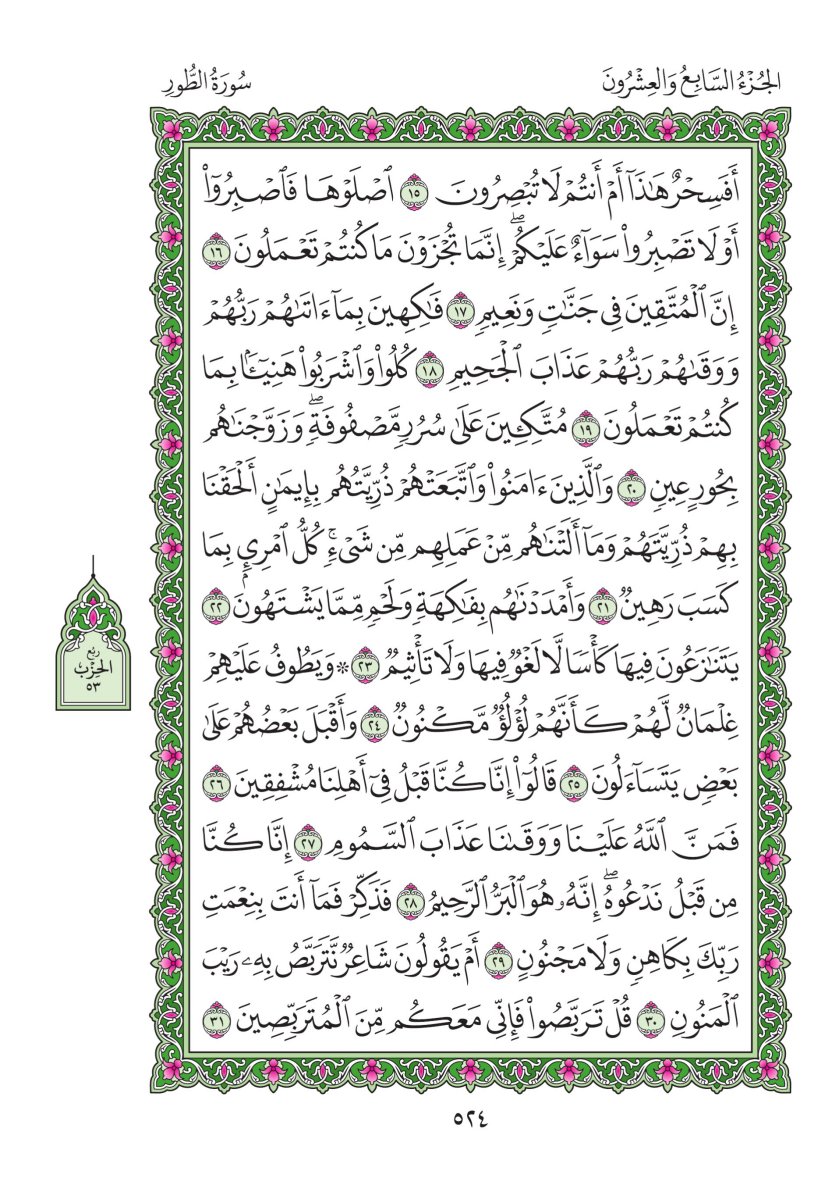 الجُزْءُ السَّابِعُ وَالعِشْرُونَ
سُورَةُ الطُّورِ
أَفَسِحْرٌ هَٰذَآ أَمْ أَنتُمْ لَا تُبْصِرُونَ ١٥ ٱصْلَوْهَا فَٱصْبِرُوٓا۟
أَوْ لَا تَصْبِرُوا۟ سَوَآءٌ عَلَيْكُمْ ۖ إِنَّمَا تُجْزَوْنَ مَا كُنتُمْ تَعْمَلُونَ ١٦
إِنَّ ٱلْمُتَّقِينَ فِى جَنَّٰتٍ وَنَعِيمٍ ١٧ فَٰكِهِينَ بِمَآ ءَاتَىٰهُمْ رَبُّهُمْ
وَوَقَىٰهُمْ رَبُّهُمْ عَذَابَ ٱلْجَحِيمِ ١٨ كُلُوا۟ وَٱشْرَبُوا۟ هَنِيٓـًٔۢا بِمَا
كُنتُمْ تَعْمَلُونَ ١٩ مُتَّكِـِٔينَ عَلَىٰ سُرُرٍ مَّصْفُوفَةٍ ۖ وَزَوَّجْنَٰهُم
بِحُورٍ عِينٍ ٢٠ وَٱلَّذِينَ ءَامَنُوا۟ وَٱتَّبَعَتْهُمْ ذُرِّيَّتُهُم بِإِيمَٰنٍ أَلْحَقْنَا
بِهِمْ ذُرِّيَّتَهُمْ وَمَآ أَلَتْنَٰهُم مِّنْ عَمَلِهِم مِّن شَىْءٍ ۚ كُلُّ ٱمْرِئٍۭ بِمَا
كَسَبَ رَهِينٌ ٢١ وَأَمْدَدْنَٰهُم بِفَٰكِهَةٍ وَلَحْمٍ مِّمَّا يَشْتَهُونَ ٢٢
يَتَنَٰزَعُونَ فِيهَا كَأْسًا لَّا لَغْوٌ فِيهَا وَلَا تَأْثِيمٌ ٢٣ ۞ وَيَطُوفُ عَلَيْهِمْ
غِلْمَانٌ لَّهُمْ كَأَنَّهُمْ لُؤْلُؤٌ مَّكْنُونٌ ٢٤ وَأَقْبَلَ بَعْضُهُمْ عَلَىٰ
بَعْضٍ يَتَسَآءَلُونَ ٢٥ قَالُوٓا۟ إِنَّا كُنَّا قَبْلُ فِىٓ أَهْلِنَا مُشْفِقِينَ ٢٦
فَمَنَّ ٱللَّهُ عَلَيْنَا وَوَقَىٰنَا عَذَابَ ٱلسَّمُومِ ٢٧ إِنَّا كُنَّا
مِن قَبْلُ نَدْعُوهُ ۖ إِنَّهُۥ هُوَ ٱلْبَرُّ ٱلرَّحِيمُ ٢٨ فَذَكِّرْ فَمَآ أَنتَ بِنِعْمَتِ
رَبِّكَ بِكَاهِنٍ وَلَا مَجْنُونٍ ٢٩ أَمْ يَقُولُونَ شَاعِرٌ نَّتَرَبَّصُ بِهِۦ رَيْبَ
ٱلْمَنُونِ ٣٠ قُلْ تَرَبَّصُوا۟ فَإِنِّى مَعَكُم مِّنَ ٱلْمُتَرَبِّصِينَ ٣١
ربع
الحِزْب
٥٣
٥٢٤